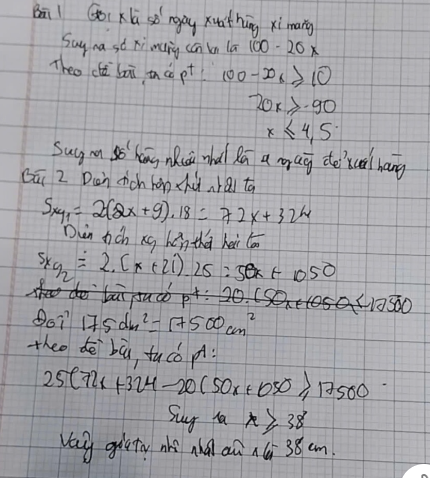 Bài 1 Gọi x là số ngày xuất hàng xi măng
Suy ra số xi măng còn lại là 100 - 20x
Theo đề bài, ta có pt: 100 - 20x ≥ 10
20x ≥ -90
x ≤ 4,5
Suy ra số hàng nhiều nhất là 4 ngày để xuất hàng
Bài 2 Diện tích hộp thứ nhất là
Sxq1 = 2(2x + 9).18 = 72x + 324
Diện tích xq hộp thứ hai là
Sxq2 = 2.(x + 21).25 = 50x + 1050
theo đề bài, ta có pt: 20.(50x + 1050 < 17500
Đổi 175dm² = 17500cm²
theo đề bài, ta có pt:
25(72x + 324 - 20(50x + 1050 ≥ 17500
Suy ra x ≥ 38
Vậy giá trị nhỏ nhất của x là 38 cm.